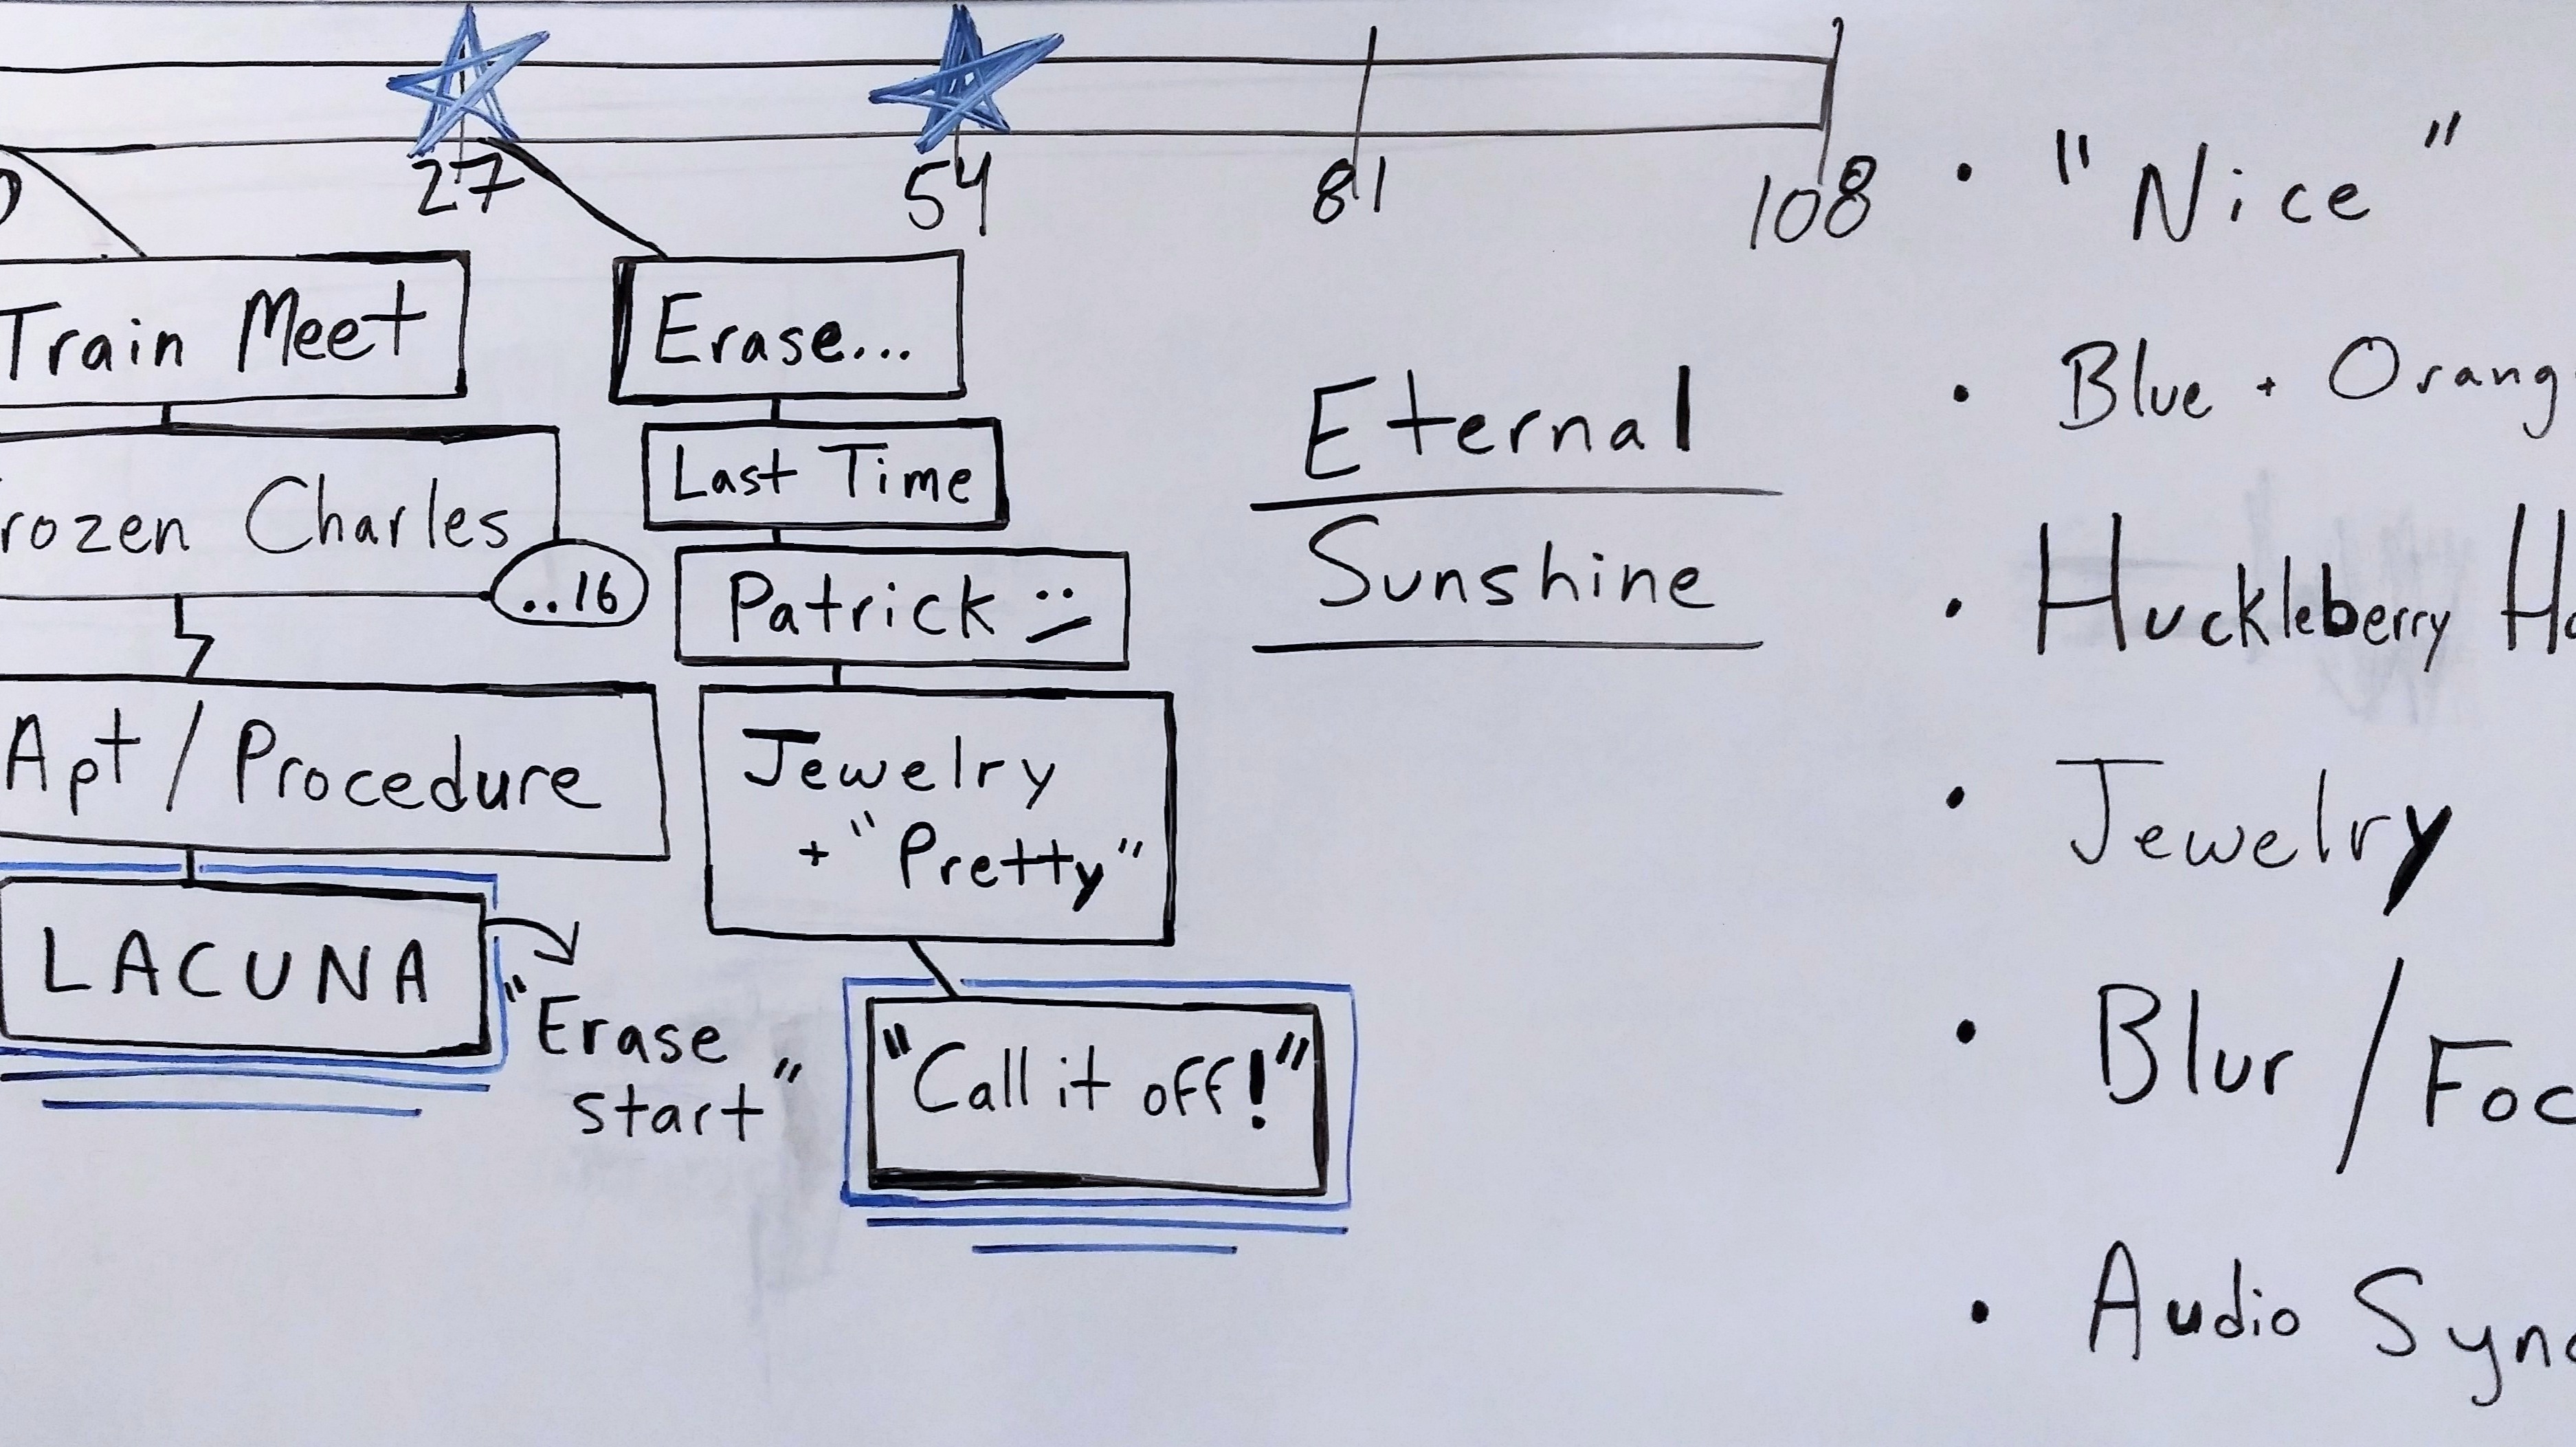 27 54 81 108
Train Meet
rozen Charles
..16
Apt / Procedure
LACUNA
"Erase
start"
Erase...
Last Time
Patrick
Jewelry
+ "Pretty"
"Call it off!"
Eternal
Sunshine
• "Nice"
• Blue + Orang
• Huckleberry H
• Jewelry
• Blur / Foc
• Audio Sync